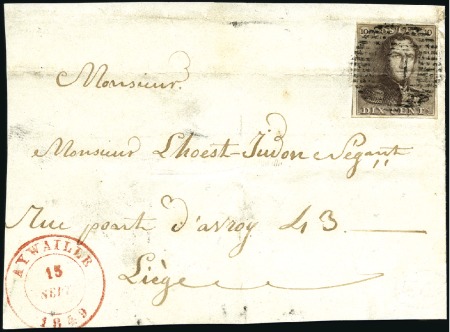 10 10
DIX CENTS
Monsieur
Monsieur Lhoest-Judon Négant
Rue pont d'avroy 43
Liège
AYWAILLE
15
SEPT
1849